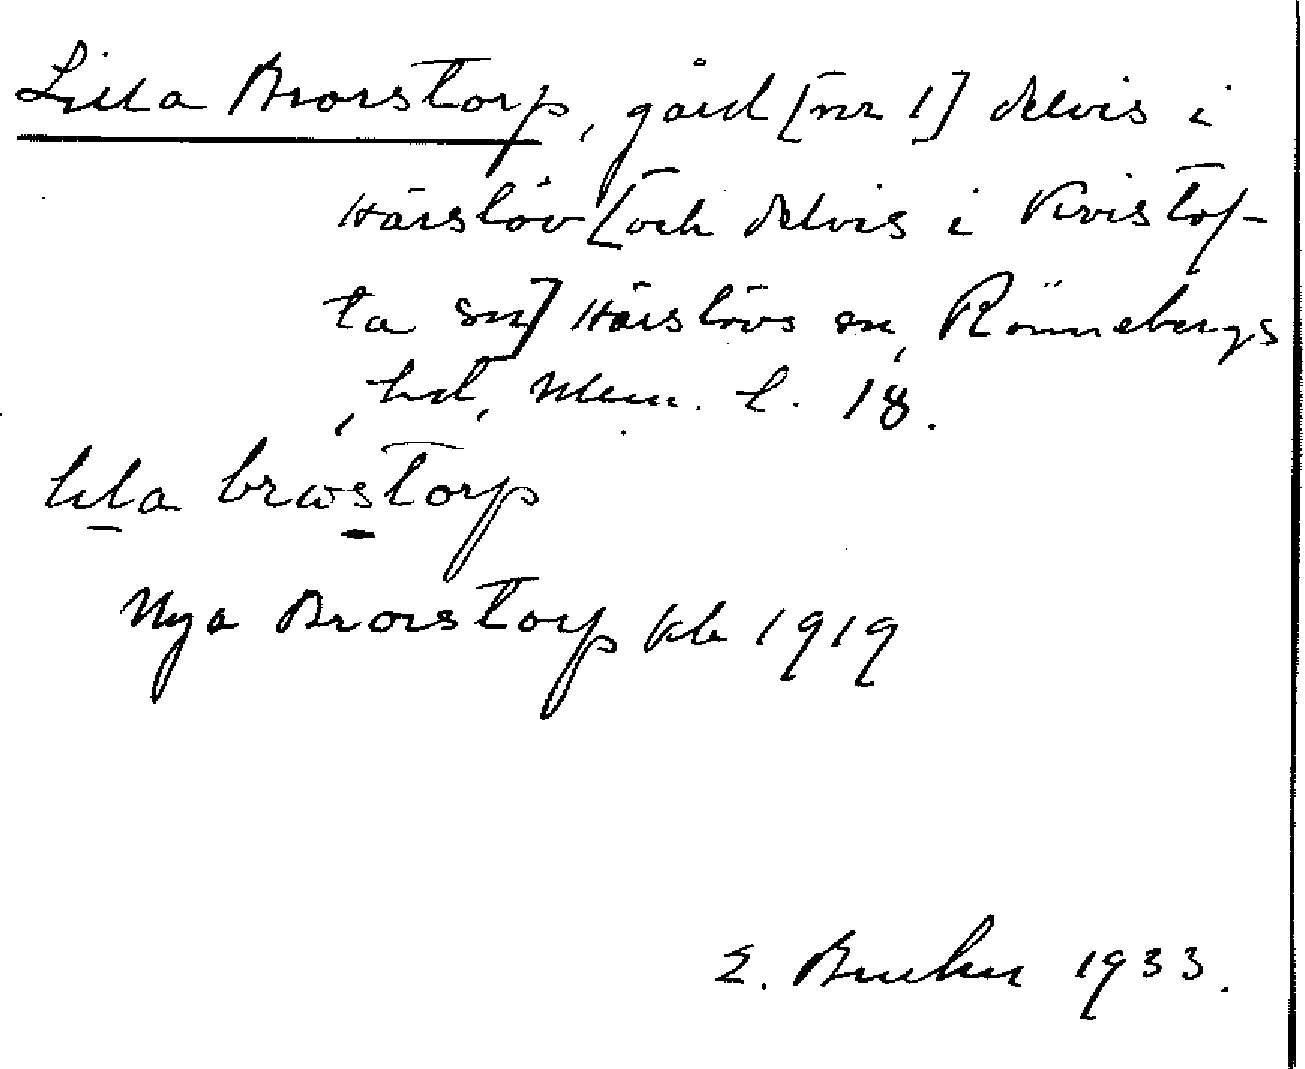 Lilla Brorstorp, gård [nr 1] delvis i
Härslöv [och delvis i Kvistof-
ta sn] Härslövs sn, Rönnebergs
hd, Mlm. l. 18.
lila brωstorp
Nya Brorstorp kb 1919
E. Bruhn 1933.